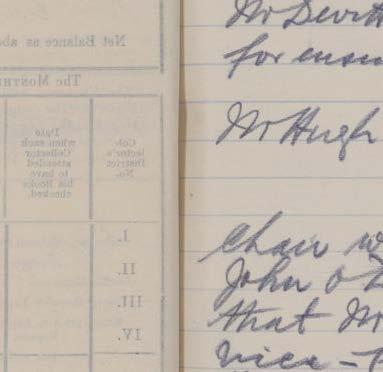 Net Balance as abo
The MONTH
Col-
lector's
District
No.
Date
when each
Collector
attended
to have
his Books
checked.
I.
II.
III.
IV.
Mr Devitt
for ensu
Mr Hugh
chair w
John O
that Mr
Vice-P